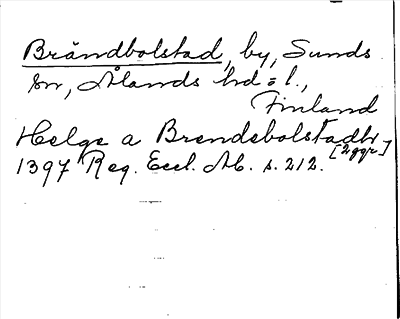 Brändbolstad, by, Sunds
sn, Ålands hd o l.,
Finland
Helge a Brendebolstadhr
[2ggr]
1397 Reg. Eccl. Ab. s. 212.